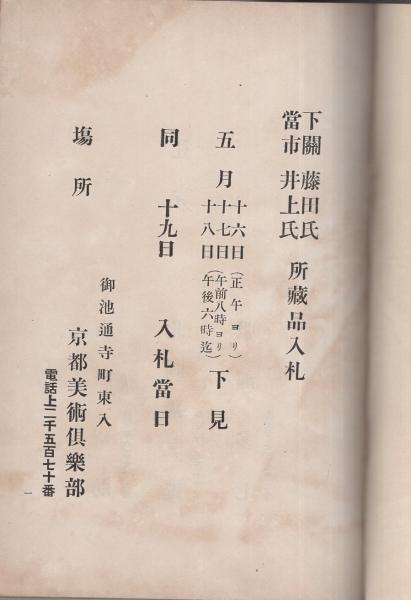 下關 藤田氏
當市 井上氏
所藏品入札
五月
十六日(正午ヨリ)
十七日(午前八時ヨリ
十八日 午後六時迄)
下見
同 十九日 入札當日
場所
御池通寺町東入
京都美術俱樂部
電話上二千五百七十番
一